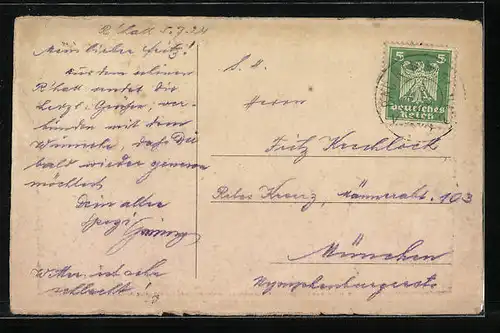 R'hall 5.7.24
Mein lieber Fritz!
Aus dem schönen
R'hall sendet die
herzl. Grüsse, ver-
bunden mit dem
Wunsche, daß Du
bald wieder genesen
möchtest
Dein alter
Spezi
Wetter ist sehr
schlecht!
S. H.
Herrn
Fritz
Rotes Kreuz, Männerabt. 103
München
Nymphenburgerstr.
5 5
Deutsches
Reich